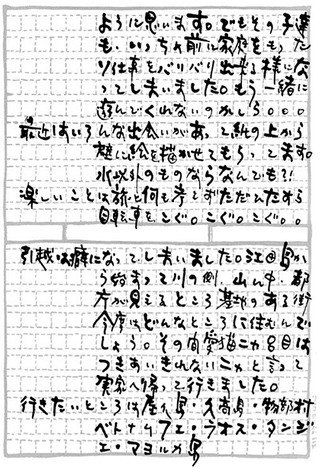 ように思います。でもその子達
も、いっちょ前に家庭をもった
り仕事をバリバリ出来る様にな
ってしまいました。もう一緒に
遊んでくれないのかしら。。。
最近はいろんな出会いがあって紙の上から
壁に絵を描かせてもらってます。
水以外のものならなんでも!!
楽しいことは旅と何も考えずただひたすら
自転車をこぐ。こぐ。こぐ。。
引越しは癖になってしまいました。江田島か
ら始まって川の側、山ん中、都
庁が見えるところ基地のある街
今度はどんなところに住むんで
しょう。その間愛猫ニカ号目は
つきあいきれないニャと言って
実家へ帰って行きました。
行きたいところは屋久島・久高島・物部村
ベトナム フエ・ラオス・タンジ
エ・マヨルカ島